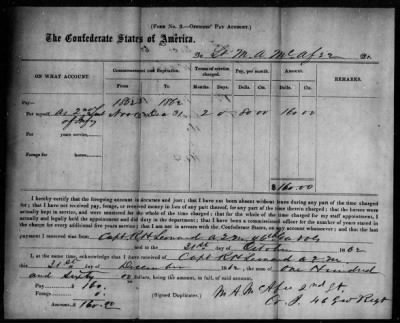 (FORM No. 3.—OFFICERS' PAY ACCOUNT.)
The Confederate States of America,
To Lt M. A. McAfee Dr.
ON WHAT ACCOUNT. Commencement and Expiration. Terms of service charged. Pay, per month. Amount. REMARKS.
From To Months. Days. Dolls. Cts. Dolls. Cts.
PAY— 1862 1862
For myself as 2nd Lt Nov 1st Dec 31st 2 0 80 00 160 00
of Infy
For years service,
FORAGE for horses
$160.00
I hereby certify that the foregoing account is accurate and just; that I have not been absent without leave during any part of the time charged
for; that I have not received pay, forage, or received money in lieu of any part thereof, for any part of the time therein charged; that the horses were
actually kept in service, and were mustered for the whole of the time charged; that for the whole of the time charged for my staff appointment, I
actually and legally held the appointment and did duty in the department; that I have been a commissioned officer for the number of years stated in
the charge for every additional five years service; that I am not in arrears with the Confederate States, on any account whatsoever; and that the last
payment I received was from Capt R H Leonard A.Q.M 46th Ga Vols
and to the 31st day of October 1862
At the same time, acknowledge that I have received of Capt R H Leonard A.Q.M.
this 31st day of December 1862, the sum of One Hundred
and Sixty 00 dollars, being the amount, in full, of said account.
Pay 160.
Forage
Amount $160.00
(Signed Duplicates.)
M. A. McAfee 2nd Lt.
Co. 46 Geo Regt